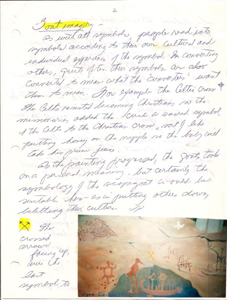 2
Goat image -
As with all symbols, people read into
symbols according to their own cultural and
individual experience of the symbol. In converting
others, quite often this symbol are also
converted to mean what the "converter" want
them to mean. For example the Celtic cross
the Celts resisted becoming Christian, so the
missionaries added the circle a sacred symbol
of the Celts to the Christian cross, not
putting honey on the nipple so the baby
As the painting progressed, the goat took
on a personal meaning, but certainly the
symbology of the scapegoat
suitable too - as a putting others down,
belittling their culture.
The
crossed
arrows
facing up,
over the
Goat
symbol to